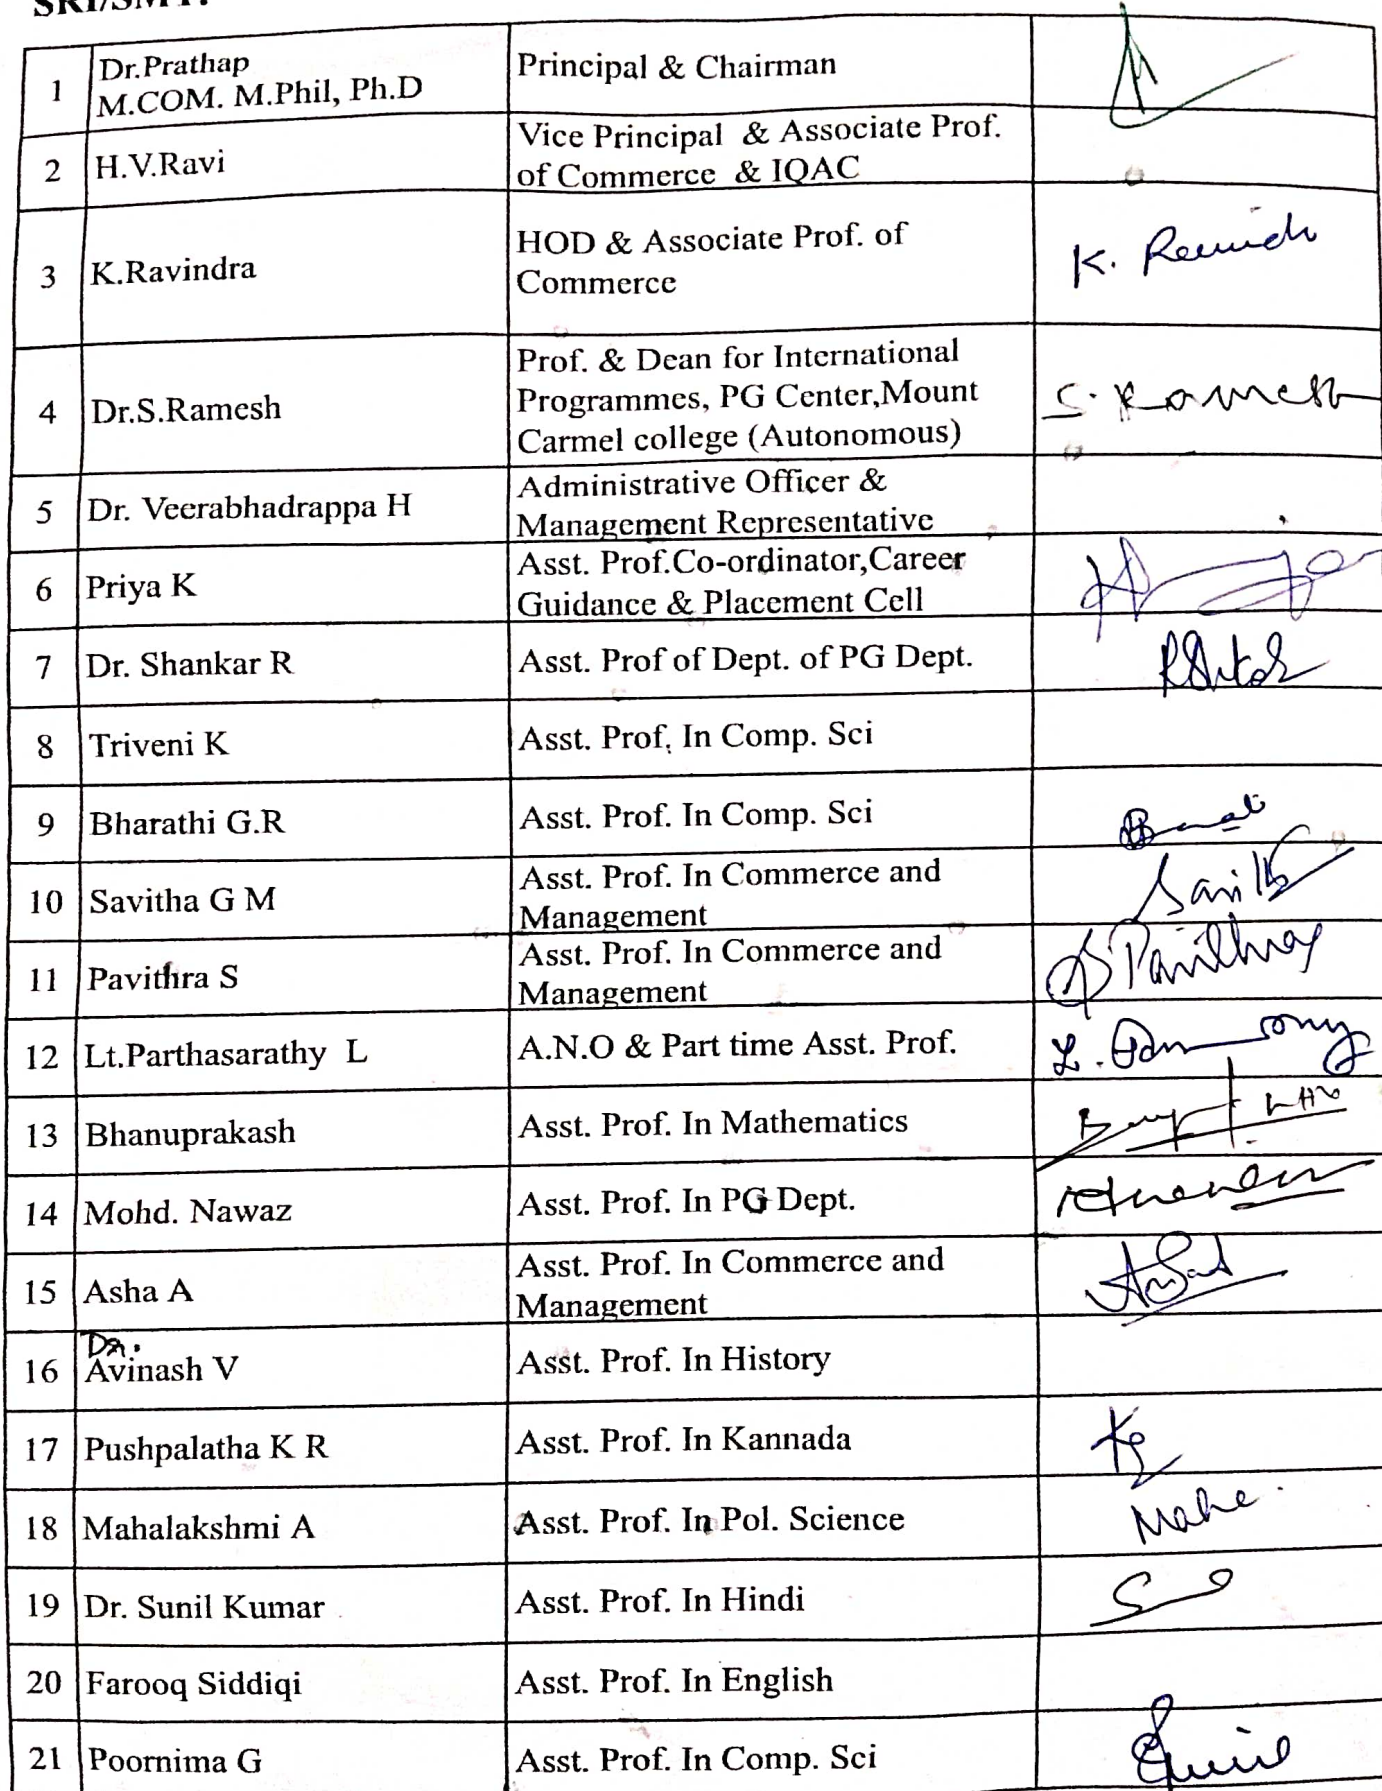 SRI/SMT.
1 Dr.Prathap Principal & Chairman
M.COM. M.Phil, Ph.D
2 H.V.Ravi Vice Principal & Associate Prof.
of Commerce & IQAC
3 K.Ravindra HOD & Associate Prof. of
Commerce
4 Dr.S.Ramesh Prof. & Dean for International
Programmes, PG Center,Mount
Carmel college (Autonomous)
S. Ramesh
5 Dr. Veerabhadrappa H Administrative Officer &
Management Representative
6 Priya K Asst. Prof.Co-ordinator,Career
Guidance & Placement Cell
7 Dr. Shankar R Asst. Prof of Dept. of PG Dept.
8 Triveni K Asst. Prof. In Comp. Sci
9 Bharathi G.R Asst. Prof. In Comp. Sci
10 Savitha G M Asst. Prof. In Commerce and
Management
11 Pavithra S Asst. Prof. In Commerce and
Management
12 Lt.Parthasarathy L A.N.O & Part time Asst. Prof.
13 Bhanuprakash Asst. Prof. In Mathematics
14 Mohd. Nawaz Asst. Prof. In PG Dept.
15 Asha A Asst. Prof. In Commerce and
Management
Dr.
16 Avinash V Asst. Prof. In History
17 Pushpalatha K R Asst. Prof. In Kannada
18 Mahalakshmi A Asst. Prof. In Pol. Science Mahe.
19 Dr. Sunil Kumar Asst. Prof. In Hindi
20 Farooq Siddiqi Asst. Prof. In English
21 Poornima G Asst. Prof. In Comp. Sci